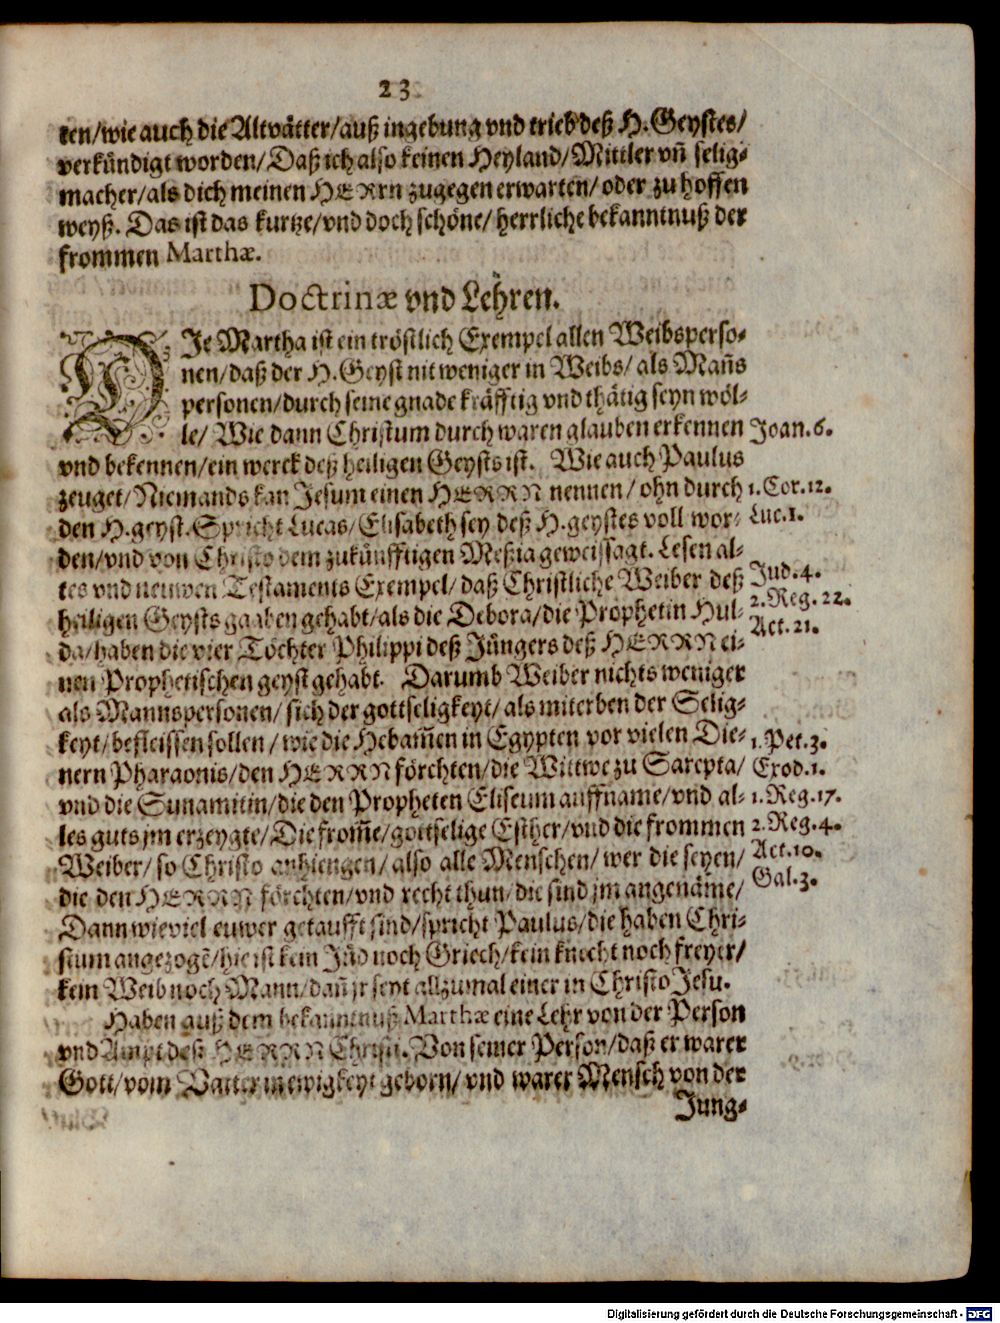 23
ten/wie auch die Altvätter/auß ingebung vnd trieb deß H. Geystes/
verkündigt worden/Daß ich also keinen Heyland/Mittler vñ selig-
macher/als dich meinen HERrn zugegen erwarten/oder zu hoffen
weyß. Das ist das kurtze/vnd doch schöne/herrliche bekanntnuß der
frommen Marthæ.
Doctrinæ vnd Lehren.
DIe Martha ist ein tröstlich Exempel allen Weibsperso-
nen/daß der H. Geyst nit weniger in Weibs/als Mañs
personen/durch seine gnade kräfftig vnd thätig seyn wöl-
le/ Wie dann Christum durch waren glauben erkennen Joan. 6.
vnd bekennen/ein werck deß heiligen Geysts ist. Wie auch Paulus
zeuget/Niemands kan Jesum einen HERRN nennen/ohn durch 1. Cor. 12.
den H. geyst. Spricht Lucas/Elisabeth sey deß H. geystes voll wor- Luc. 1.
den/vnd von Christo dem zukünfftigen Meßia geweissagt. Lesen al-
tes vnd neuwen Testaments Exempel/daß Christliche Weiber deß Jud. 4.
heiligen Geysts gaaben gehabt/als die Debora/die Prophetin Hul- 2. Reg. 22.
da/haben die vier Töchter Philippi deß Jüngers deß HERRN ei- Act. 21.
nen Prophetischen geyst gehabt. Darumb Weiber nichts weniger
als Mannspersonen/sich der gottseligkeyt/als miterben der Selig-
keyt/befleissen sollen/wie die Hebam̃en in Egypten vor vielen Die- 1. Pet. 3.
nern Pharaonis/den HERRN förchten/die Wittwe zu Sarepta/ Exod. 1.
vnd die Sunamitin/die den Propheten Eliseum auffname/vnd al- 1. Reg. 17.
les guts jm erzeygte/Die from̃e/gottselige Esther/vnd die frommen 2. Reg. 4.
Weiber/so Christo anhiengen/also alle Menschen/wer die seyen/ Act. 10.
die den HERRN förchten/vnd recht thun/die sind jm angenäme/ Gal. 3.
Dann wieviel euwer getaufft sind/spricht Paulus/die haben Chri-
stum angezogẽ/hie ist kein Jüd noch Griech/kein knecht noch freyer/
kein Weib noch Mann/dañ jr seyt allzumal einer in Christo Jesu.
Haben auß dem bekanntnuß Marthæ eine Lehr von der Person
vnd Ampt deß HERRN Christi. Von seiner Person/daß er warer
Gott/vom Vatter in ewigkeyt geborn/vnd warer Mensch von der
Jung-
Digitalisierung gefördert durch die Deutsche Forschungsgemeinschaft - DFG